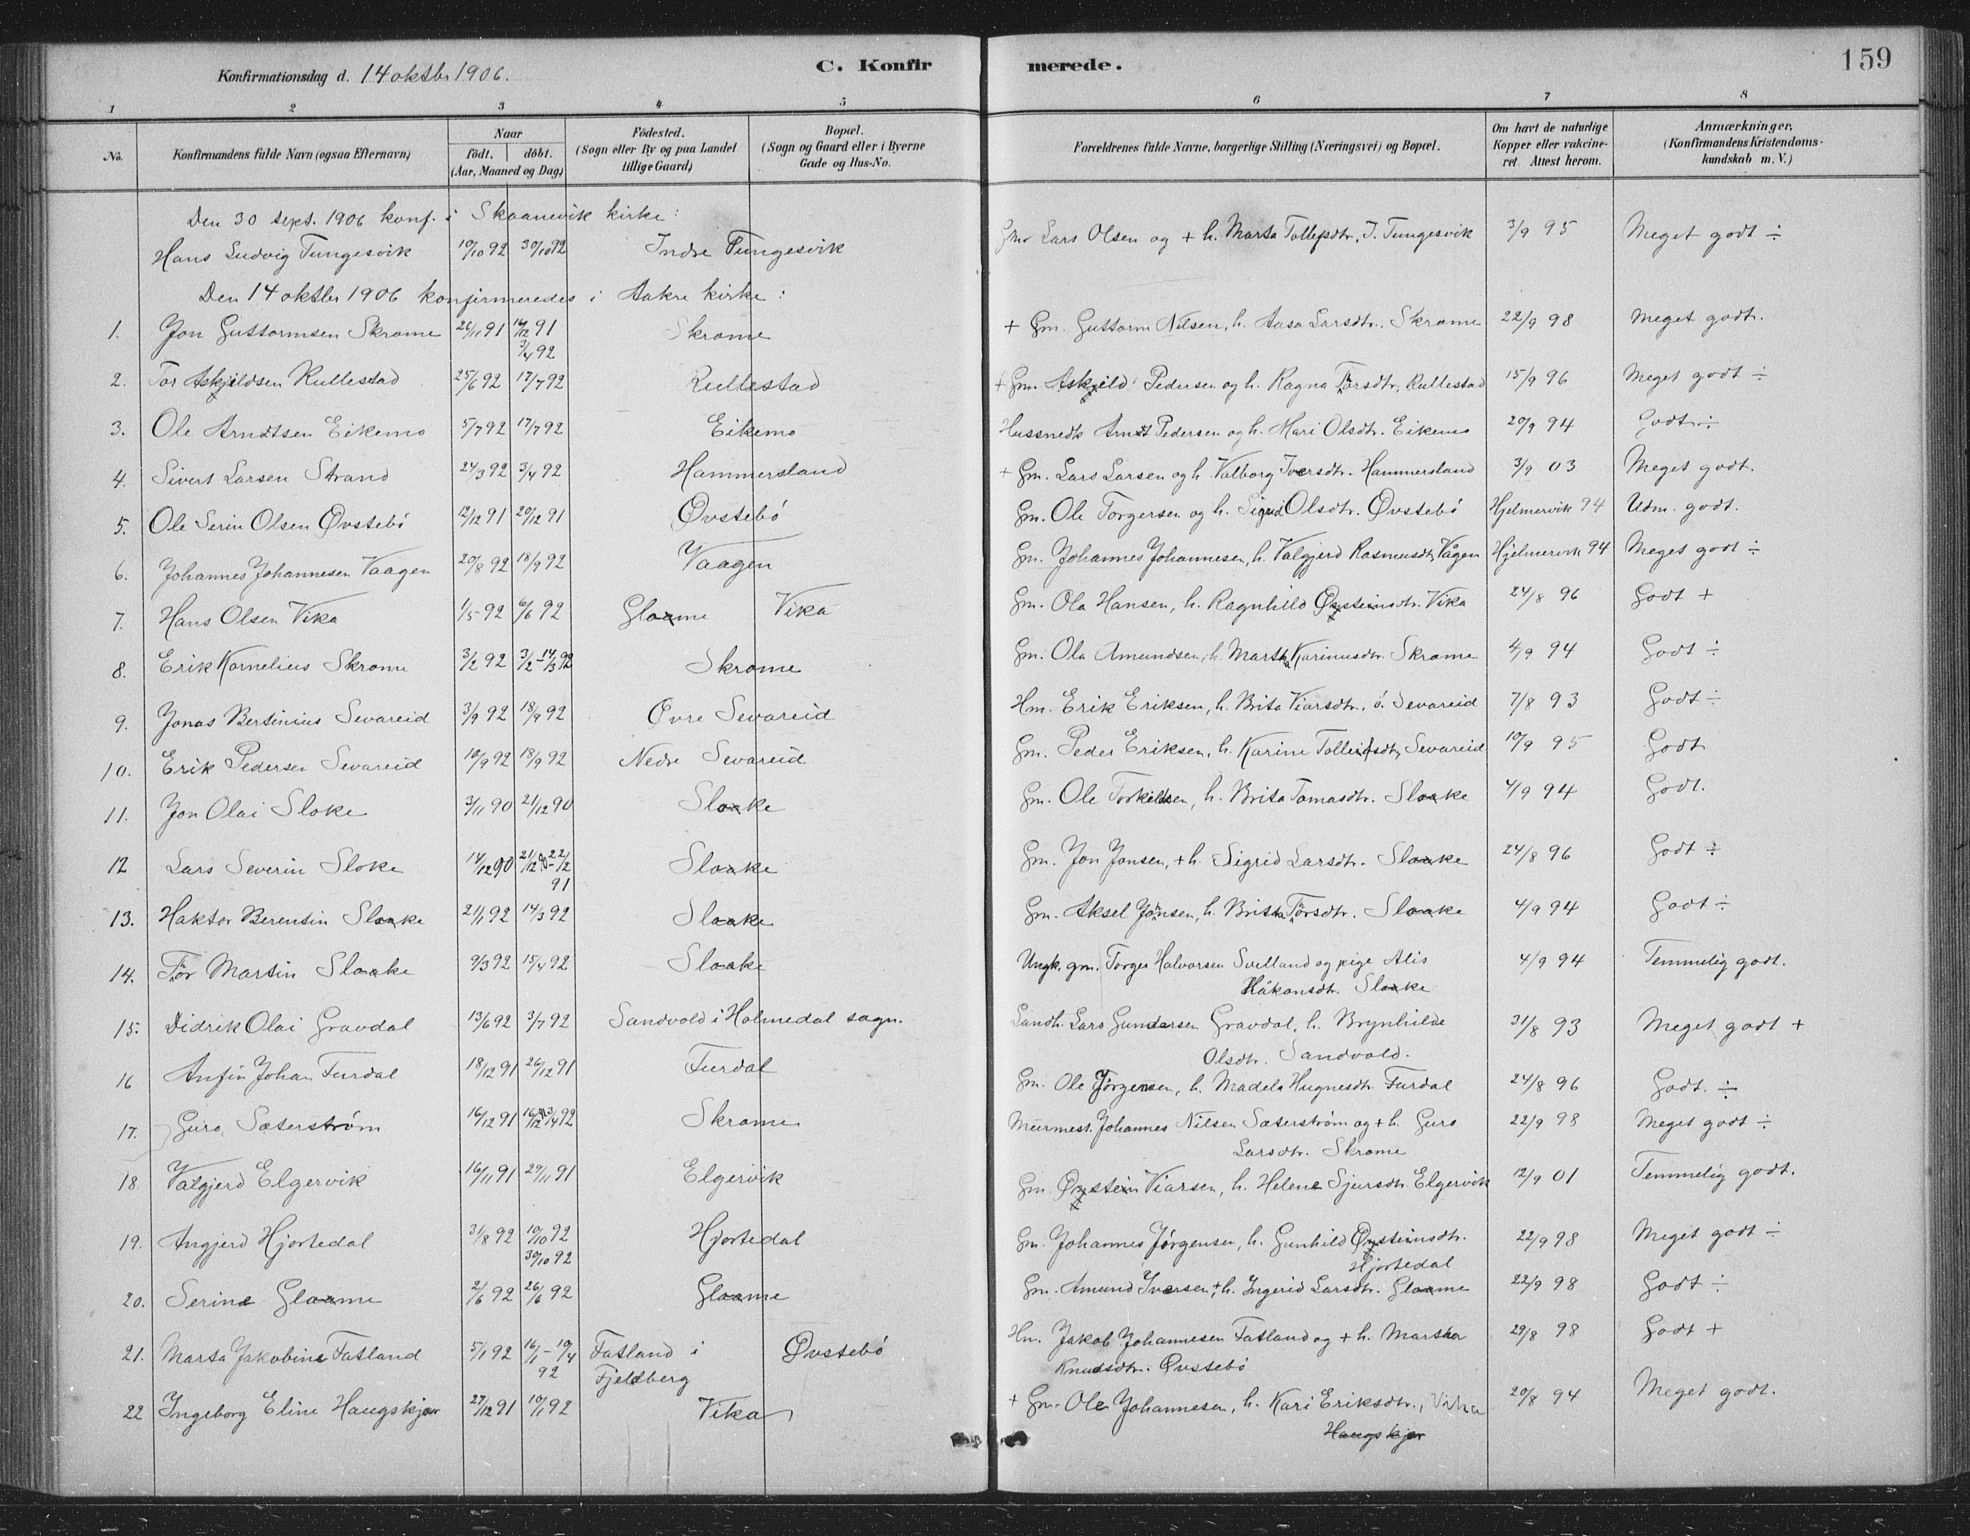 Konfirmationsdag d. 14 oktbr 1906. C. Konfirmerede. 159
1 2 3 4 5 6 7 8
No. Konfirmandens fulde Navn (ogsaa Efternavn) Naar födt. döbt. (Aar, Maaned og Dag) Födested. (Sogn eller By og paa Landet tillige Gaard) Bopæl. (Sogn og Gaard eller i Byerne Gade og Hus-No. Forældrenes fulde Navne, borgerlige Stilling (Næringsvei) og Bopæl. Om havt de naturlige Kopper eller vakcineret. Attest herom. Anmærkninger. (Konfirmandens Kristendomskundskab m. V.)
Den 30 sept. 1906 konf. i Skaanevik kirke:
Hans Ludvig Tungesvik 10/10 92 30/10 92 Indre Tungesvik Gm. Lars Olsen og + h. Marta Tollefsdtr. I. Tungesvik 3/9 95 Meget godt ÷
Den 14 oktbr 1906 konfirmeredes i Aakre kirke:
1. Jon Guttormsen Skrome 26/11 91 14/12 91 3/4 92 Skrome + Gm. Guttorm Nilsen, h. Aasa Larsdtr. Skrome 22/9 98 Meget godt.
2. Tor Askjeldsen Rullestad 25/6 92 17/7 92 Rullestad + Gm. Askjeld Pedersen og h. Ragna Torsdtr, Rullestad 15/9 96 Meget godt ÷
3. Ole Arndtsen Eikemo 5/7 92 17/7 92 Eikemo Husmedh Arndt Pedersen og h. Mari Olsdtr. Eikemo 20/9 94 Godt ÷
4. Sivert Larsen Strand 24/3 92 3/4 92 Hammersland + Gm. Lars Larsen og h. Valborg Iversdtr. Hammersland 3/9 03 Meget godt.
5. Ole Serin Olsen Øvstebö 12/12 91 20/12 91 Øvstebö Gm. Ole Torgersen og h. Sigrid Olsdtr. Øvstebö Hjelmervik 94 Udm. godt.
6. Johannes Johannesen Vaagen 20/8 92 18/9 92 Vaagen Gm. Johannes Johannesen, h. Valgjerd Rasmusdtr, Vågen Hjelmervik 94 Meget godt ÷
7. Hans Olsen Vika 1/5 92 6/6 92 Gloame Vika Gm. Ola Hansen, h. Ragnhild Øysteinsdtr. Vika 24/8 96 Godt +
8. Erik Kornelius Skrome 3/2 92 3/2-14/3 92 Skrome Gm. Ola Amundsen, h. Martha Karinusdtr. Skrome 4/9 94 Godt ÷
9. Jonas Bertinius Sevareid 3/9 92 18/9 92 Övre Sevareid Hm. Erik Eriksen, h. Brita Viarsdtr. ö. Sevareid 7/8 93 Godt ÷
10. Erik Pedersen Sevareid 10/9 92 18/9 92 Nedre Sevareid Gm. Peder Eriksen, h. Karine Tolleifsdtr, Sevareid 10/9 95 Godt
11. Jon Olai Sloke 3/11 90 21/12 90 Sloake Gm. Ole Torkildsen, h. Brita Tomasdtr. Sloake 4/9 94 Godt.
12 Lars Severin Sloke 14/12 90 21/12 90-22/2 91 Sloake Gm. Jon Jonsen, + h. Sigrid Larsdtr. Sloake 24/8 96 Godt ÷
13. Haktor Berentin Sloake 21/1 92 14/3 92 Sloake Gm. Aksel Jönsen, h. Britha Torsdtr. Sloake 4/9 94 Godt ÷
14. Tor Martin Sloake 9/3 92 15/4 92 Sloake Ungk. gm. Torger Halvorsen Svelland og pige Alis 4/9 94 Temmelig godt.
Håkonsdtr. Sloake
15. Didrik Olai Gravdal 13/6 92 3/7 92 Sandvold i Holmedal sogn. Landh. Lars Gundersen Gravdal, h. Brynhilde 31/8 93 Meget godt +
Olsdtr. Sandvold.
16 Anfin Johan Furdal 18/12 91 26/12 91 Furdal Gm. Ole Jörgensen, h. Madela Hugnesdtr. Furdal 24/8 96 Godt. ÷
17. Guro Sæterström 16/12 91 3/4 92 Skrome Murmest. Johannes Nilsen Sæterström og + h. Guro 22/9 98 Meget godt ÷
Larsdtr. Skrome
18. Valgjerd Elgervik 16/11 91 29/11 91 Elgervik Gm. Øystein Viarsen, h. Helene Sjursdtr. Elgervik 12/9 01 Temmelig godt.
19. Angjerd Hjortedal 31/8 92 10/10 92 30/10 92 Hjortedal Gm. Johannes Jörgensen, h. Gunhild Øysteinsdtr. 22/9 98 Meget godt ÷
Hjortedal
20. Serine Gloame 2/6 92 26/6 92 Gloame Gm. Amund Iversen, + h. Ingerid Larsdtr. Gloame 22/9 98 Godt ÷
21. Marta Jakobine Fatland 5/1 92 16/1 - 10/4 92 Fatland i Fjeldberg Øvstebö Hm. Jakob Johannesen Fatland og + h. Martha 29/8 98 Godt +
Knudsdtr. Øvstebö
22 Ingeborg Eline Haugskjær 27/12 91 10/1 92 Vika + Gm. Ole Johannesen, h. Kari Eriksdtr., Vika 20/8 94 Meget godt.
Haugskjær